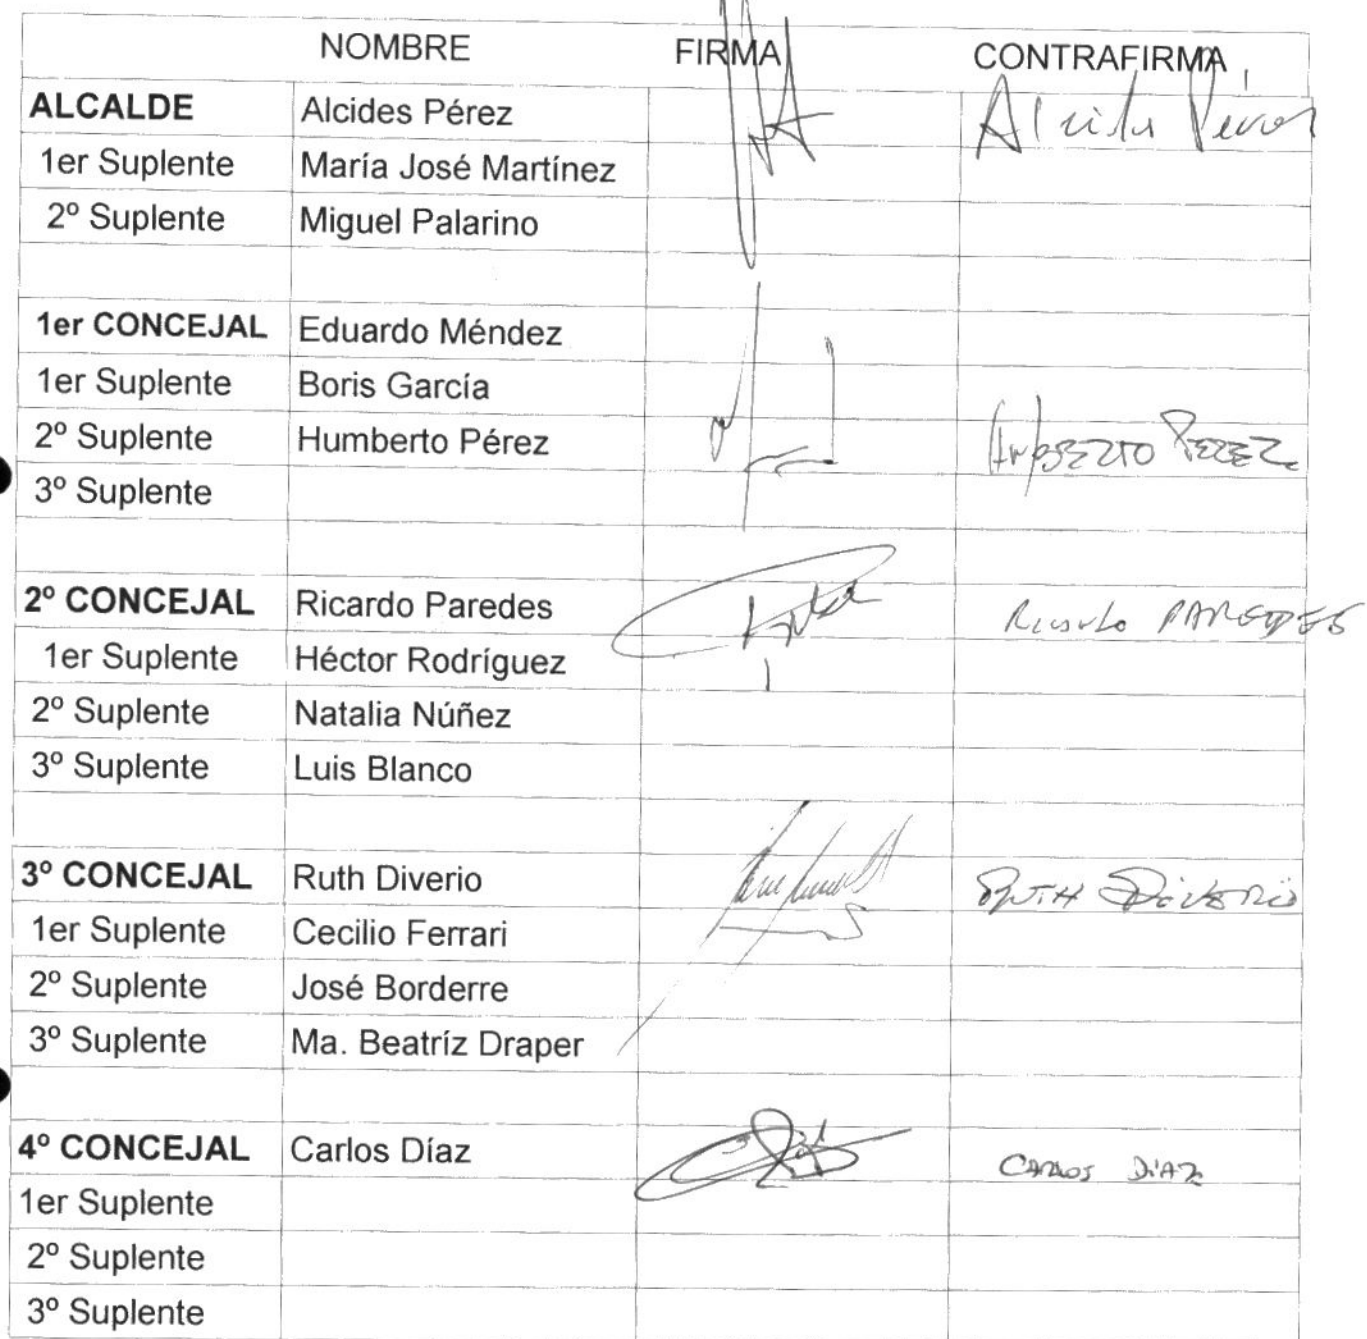 NOMBRE FIRMA CONTRAFIRMA
ALCALDE Alcides Pérez Alcides Pérez
1er Suplente María José Martínez
2º Suplente Miguel Palarino
1er CONCEJAL Eduardo Méndez
1er Suplente Boris García
2º Suplente Humberto Pérez HumbERTO PEREZ
3º Suplente
2º CONCEJAL Ricardo Paredes Ricardo PAREDES
1er Suplente Héctor Rodríguez
2º Suplente Natalia Núñez
3º Suplente Luis Blanco
3º CONCEJAL Ruth Diverio RUTH DiVERiO
1er Suplente Cecilio Ferrari
2º Suplente José Borderre
3º Suplente Ma. Beatríz Draper
4º CONCEJAL Carlos Díaz CARLOS DíAZ
1er Suplente
2º Suplente
3º Suplente